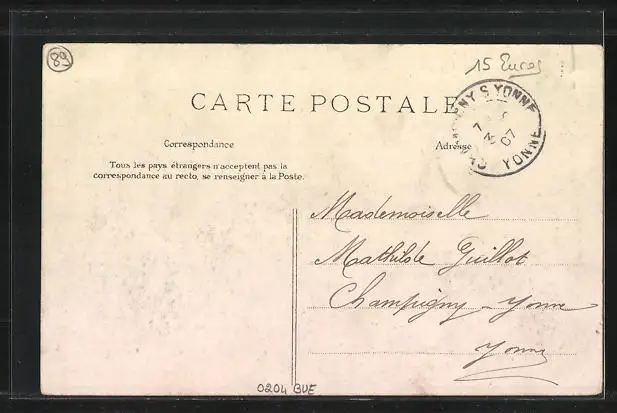 89
15 Euros
CARTE POSTALE
Correspondance
Adresse
Tous les pays étrangers n'acceptent pas la
correspondance au recto, se renseigner à la Poste.
GNY S YONNE
7
07
YONNE
Mademoiselle
Mathilde Guillot
Champigny - Yonne
Yonne
0204 BUE